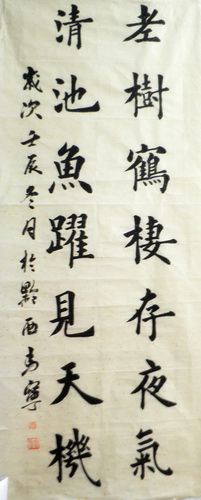 老樹鶴棲存夜氣
清池魚躍見天機
歲次壬辰冬月於黔西